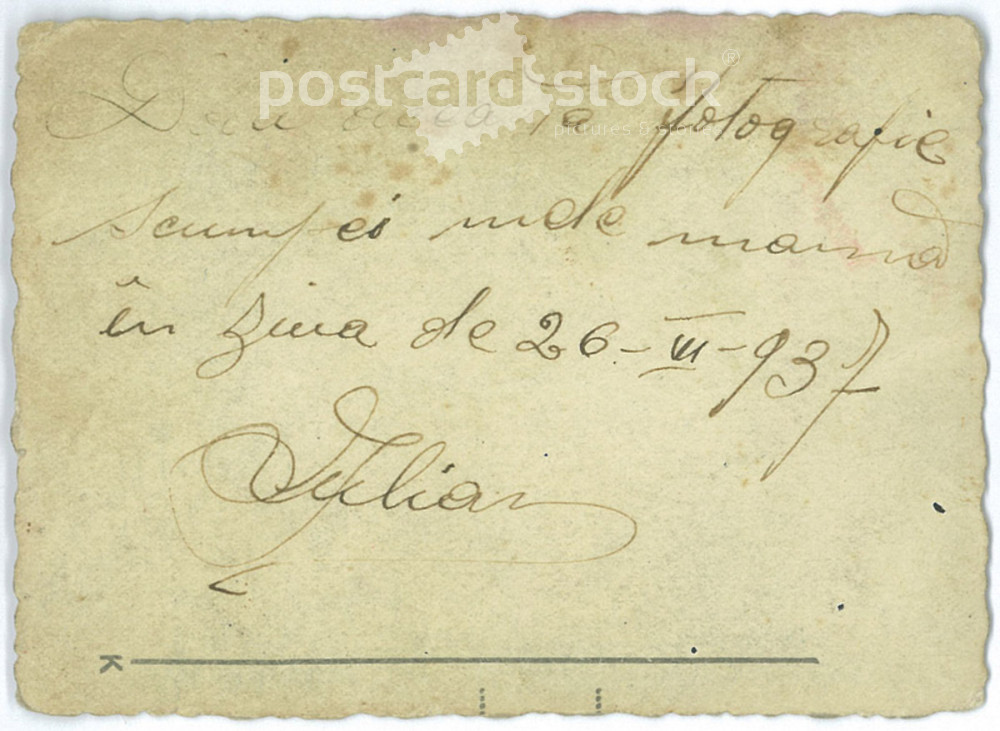 postcard-stock®
pictures & stories
Dau aceasta fotografie
scumpei mele mamă
în ziua de 26-VI-937
Iulian
K